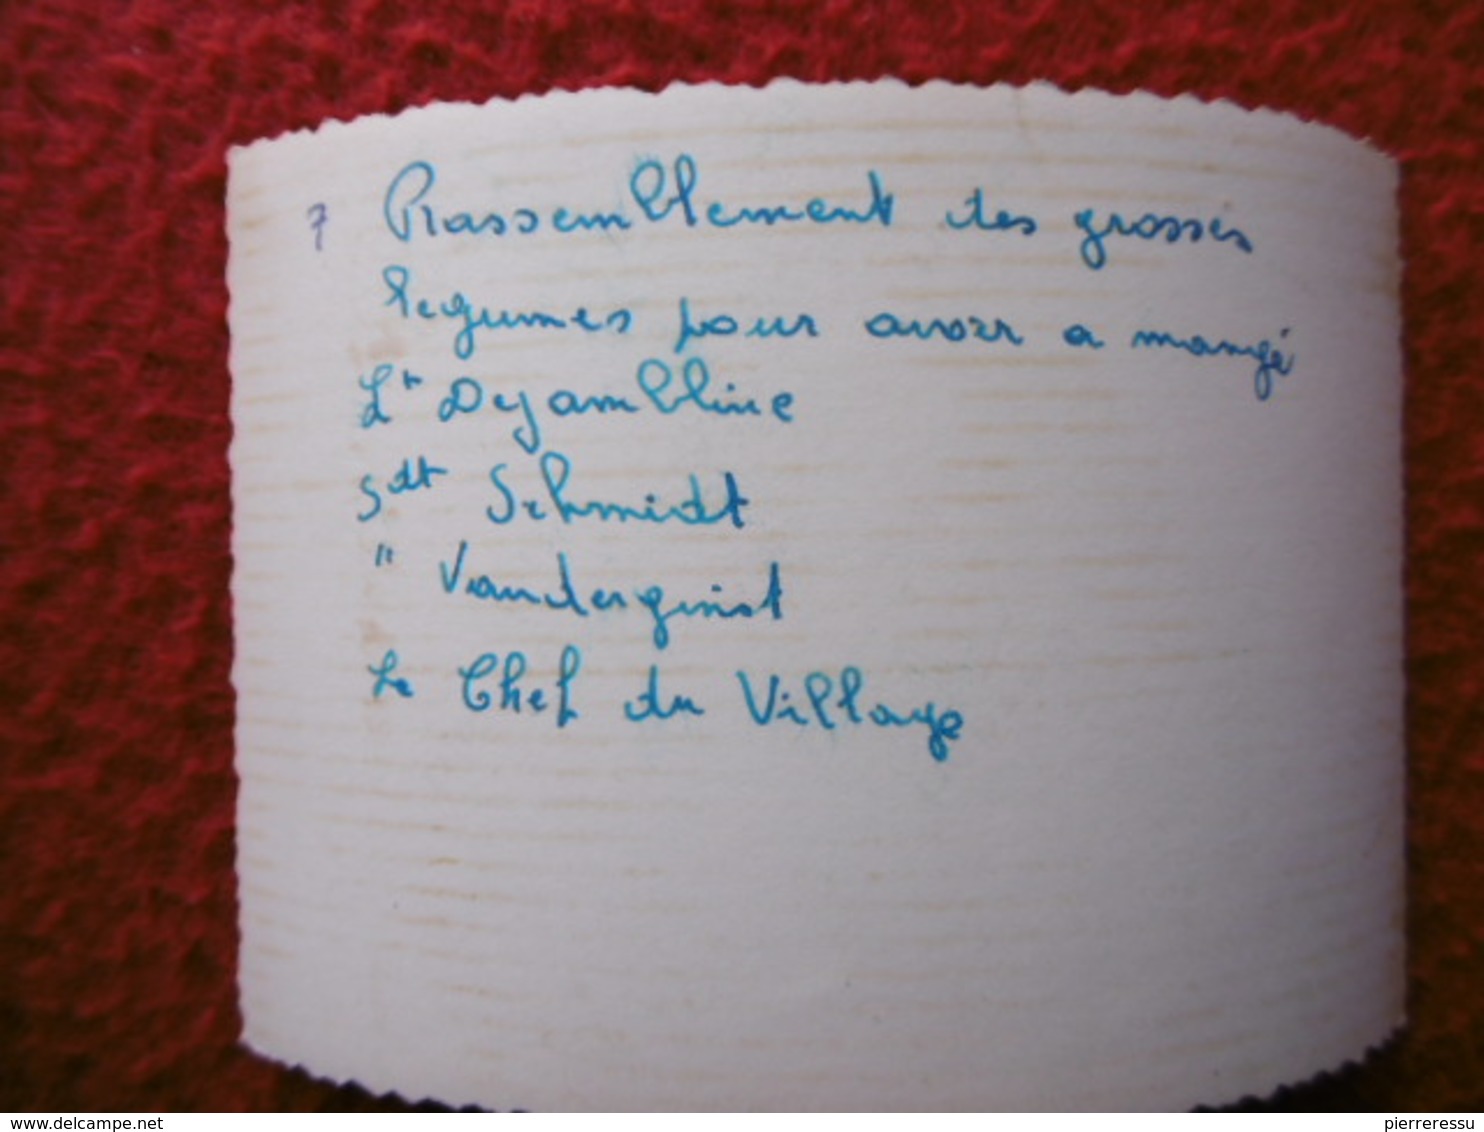 7 Rassemblement des grosses
legumes pour avoir a mangé
Lt Dejambline
Sdt Schmidt
" Vanderginst
Le Chef du Village
www.delcampe.net
pierreressu